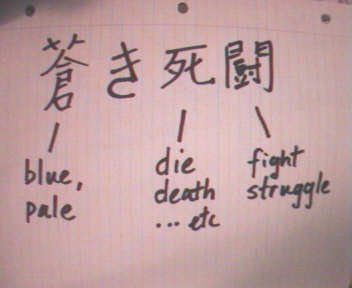 蒼き死闘
blue,
pale
die
death
... etc
fight
struggle